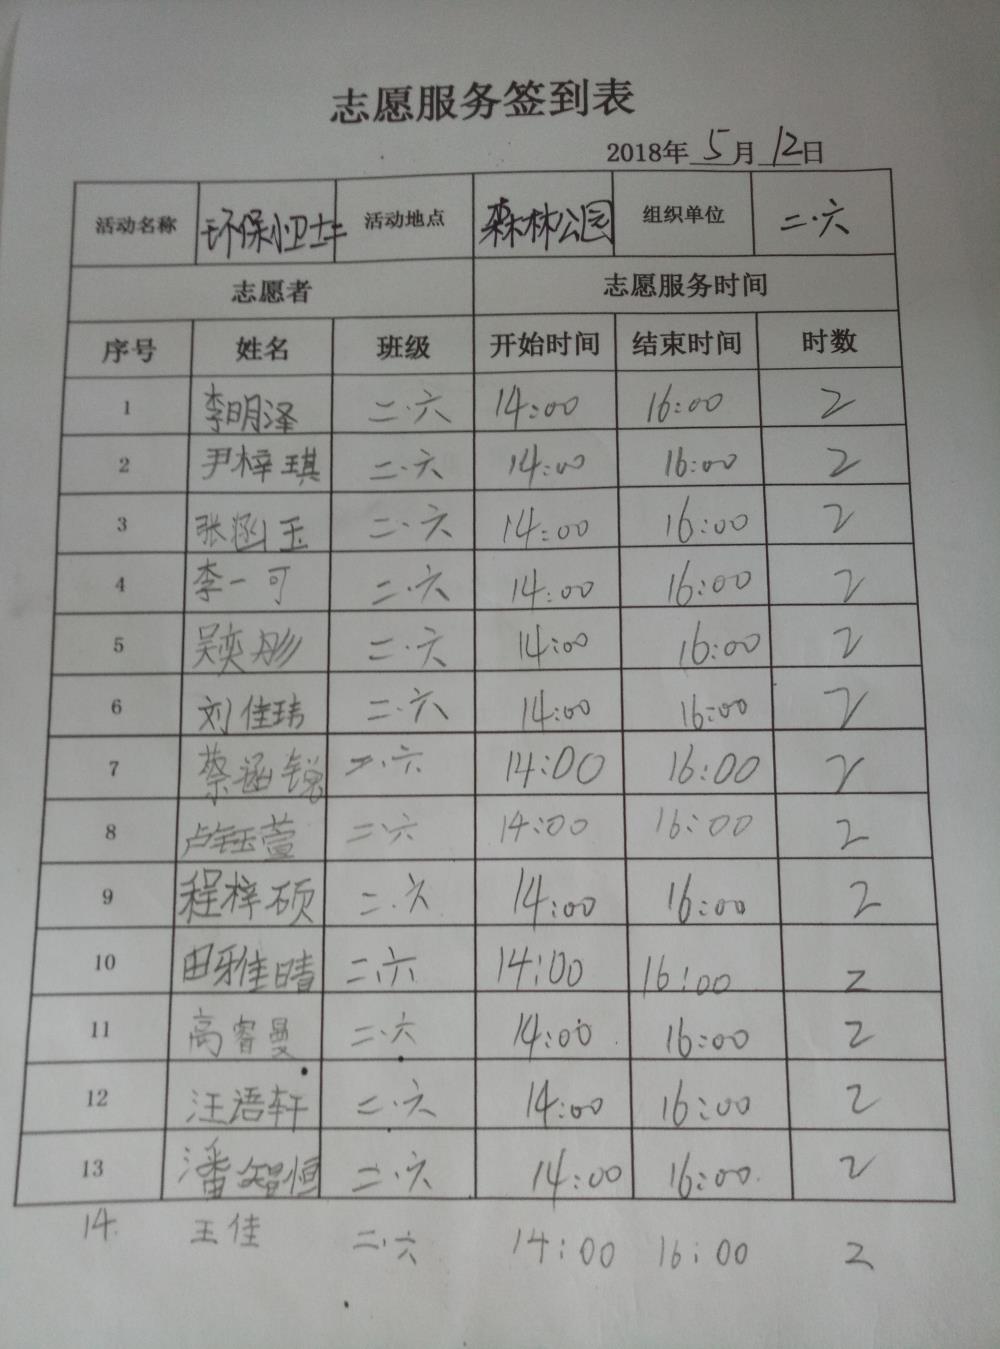 志愿服务签到表
2018年5月12日
活动名称 环保小卫士 活动地点 森林公园 组织单位 二·六
志愿者 志愿服务时间
序号 姓名 班级 开始时间 结束时间 时数
1 李明泽 二·六 14:00 16:00 2
2 尹梓琪 二·六 14:00 16:00 2
3 张涵玉 二·六 14:00 16:00 2
4 李一可 二·六 14:00 16:00 2
5 吴奕彤 二·六 14:00 16:00 2
6 刘佳玮 二·六 14:00 16:00 2
7 蔡涵锐 二·六 14:00 16:00 2
8 卢钰萱 二·六 14:00 16:00 2
9 程梓硕 二·六 14:00 16:00 2
10 田雅晴 二·六 14:00 16:00 2
11 高睿曼 二·六 14:00 16:00 2
12 汪语轩 二·六 14:00 16:00 2
13 潘智恒 二·六 14:00 16:00 2
14. 王佳 二·六 14:00 16:00 2